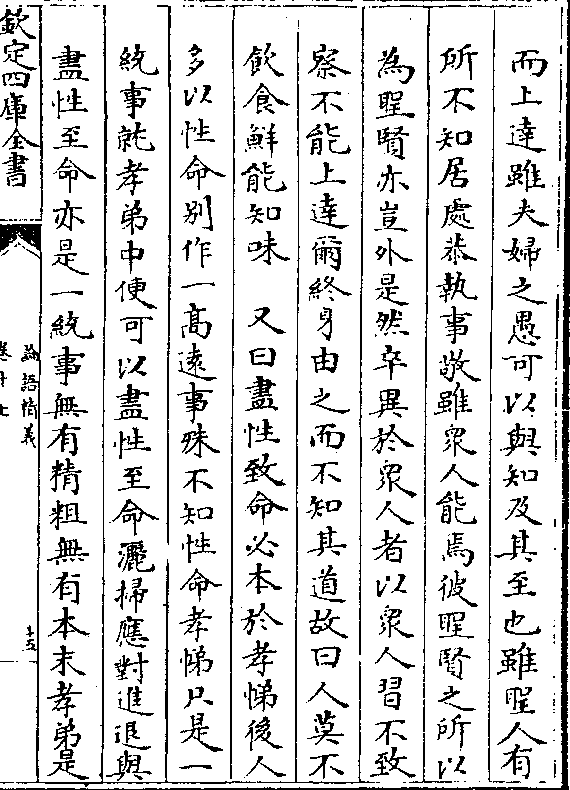 而上達雖夫婦之愚可以與知及其至也雖聖人有
所不知居處恭執事敬雖衆人能焉彼聖賢之所以
為聖賢亦豈外是然卒異於衆人者以衆人習不致
察不能上達爾終身由之而不知其道故曰人莫不
飲食鮮能知味　又曰盡性致命必本於孝悌後人
多以性命别作一高遠事殊不知性命孝悌只是一
統事就孝弟中便可以盡性至命灑掃應對進退與
盡性至命亦是一統事無有精粗無有本末孝弟是
欽定四庫全書
論語精義
十五